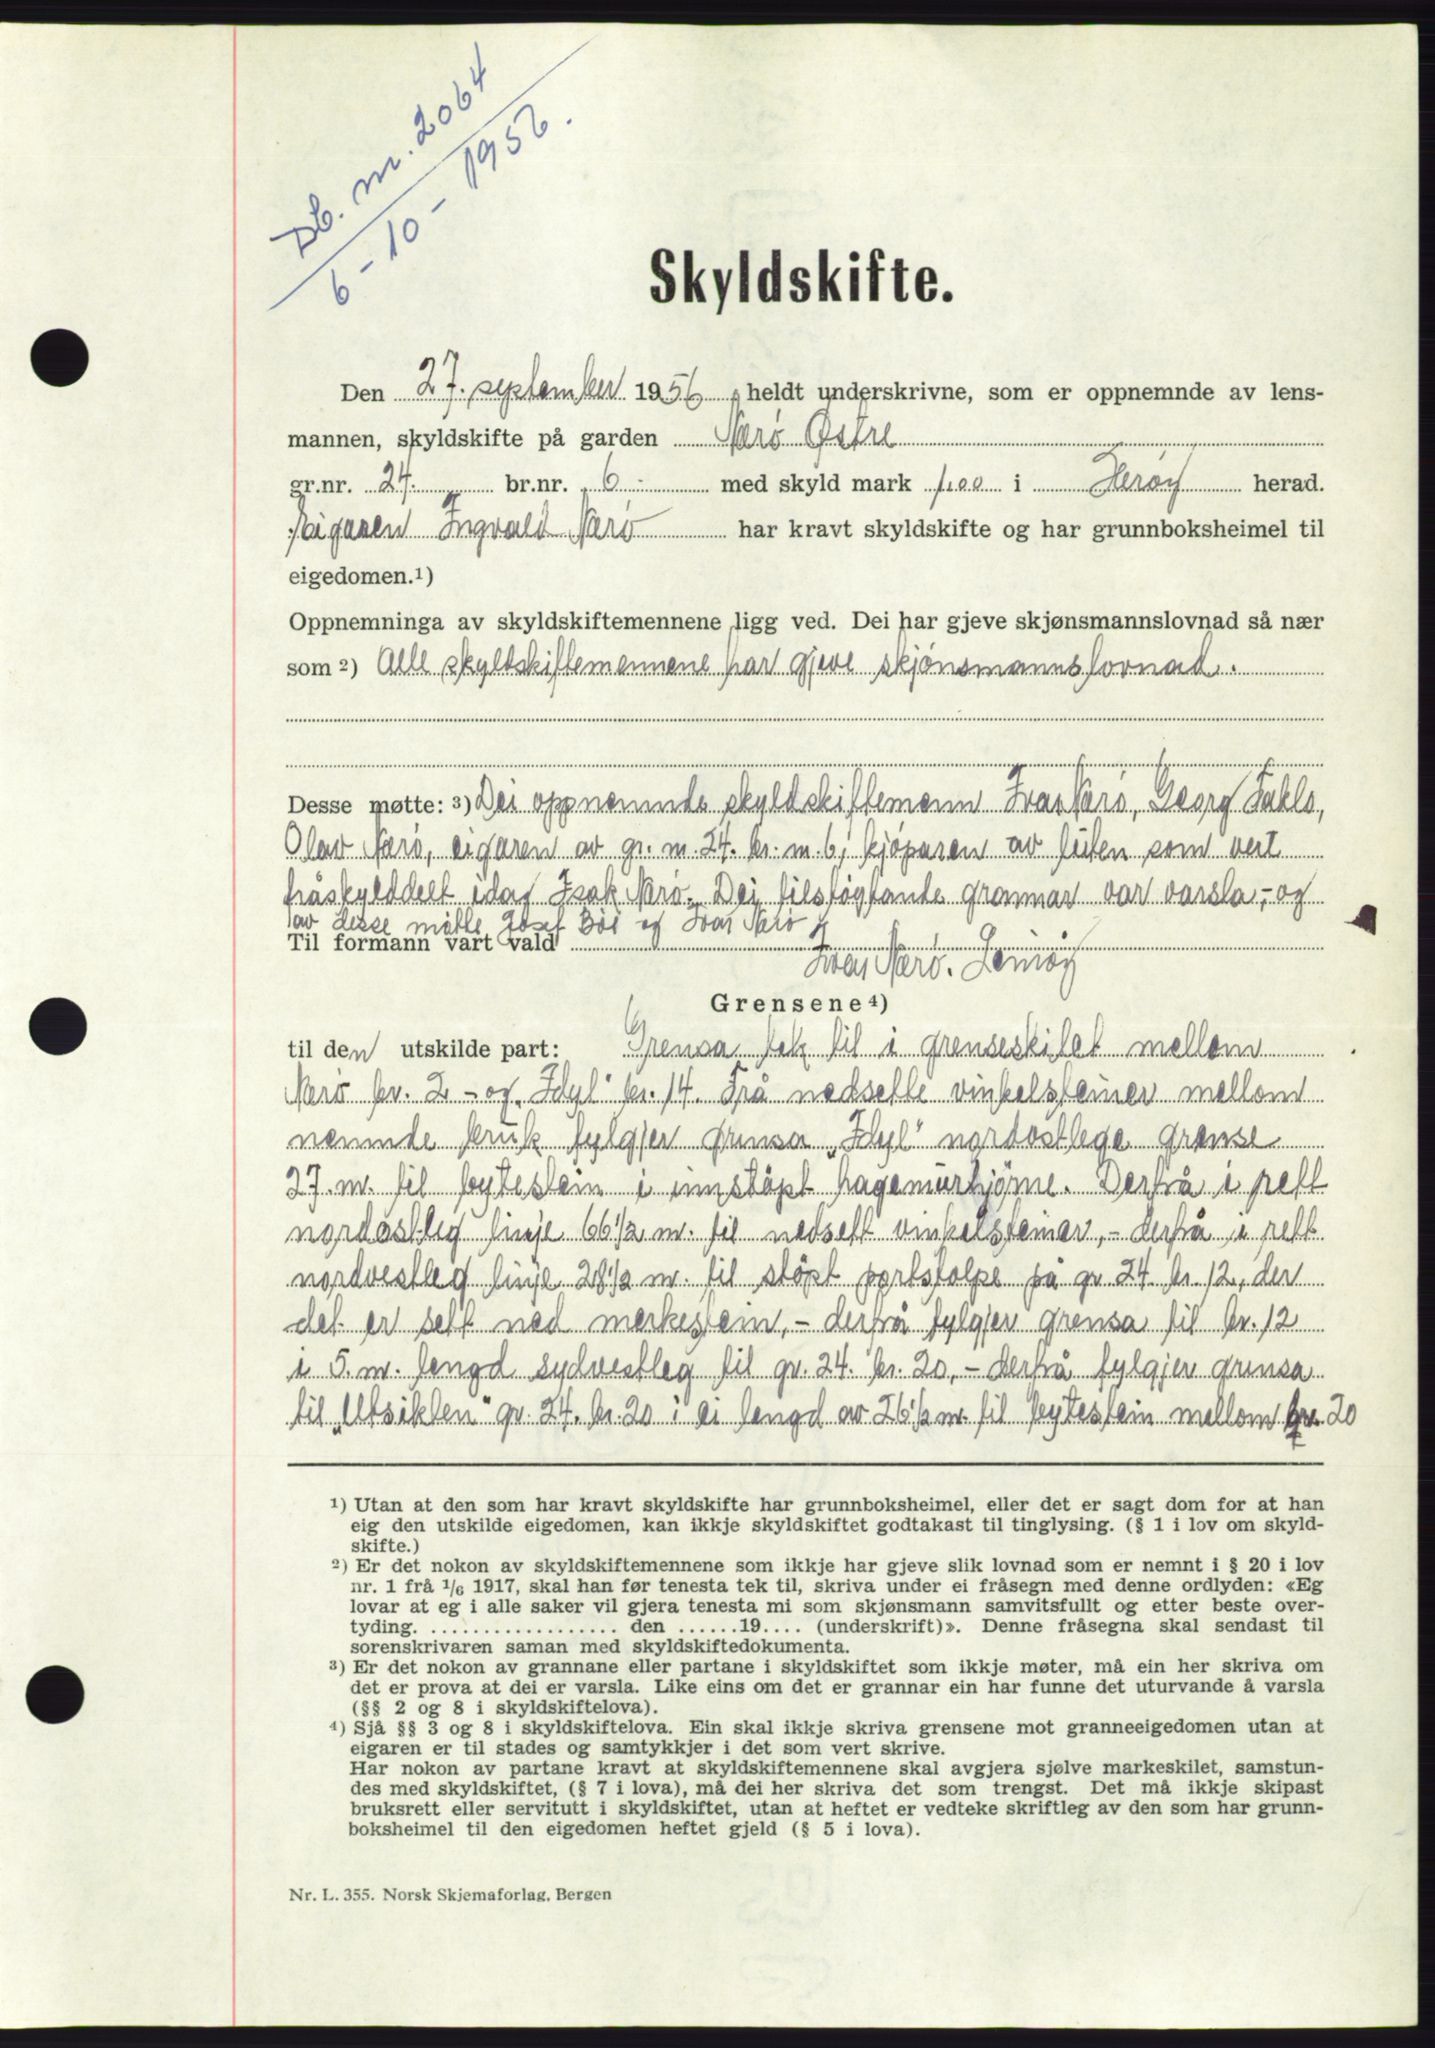 Db. nr. 2064
6-10-1956.
Skyldskifte.
Den 27. september 1956 heldt underskrivne, som er oppnemnde av lens-
mannen, skyldskifte på garden Nærø Østre
gr.nr. 24. br.nr. 6 med skyld mark 1.00 i Herøy herad.
Eigaren Ingvald Nærø har kravt skyldskifte og har grunnboksheimel til
eigedomen.¹)
Oppnemninga av skyldskiftemennene ligg ved. Dei har gjeve skjønsmannslovnad så nær
som ²) Alle skyldskiftemennene har gjeve skjønsmannslovnad.
Desse møtte: ³) Dei oppnemnde skyldskiftemenn Ivar Nærø, Georg
Olav Nærø, eigaren av gr. nr. 24. br. nr. 6, kjøparen av luten som vert
fråskylddelt idag Isak Nærø. Dei tilstøytande grannar var varsla, - og
av desse møtte Josef Bøe og Ivar Nærø
Til formann vart vald
Ivar Nærø.
Grensene ⁴)
til den utskilde part: Grensa tek til i grenseskilet mellom
Nærø br. 2 - og "Idyl" br. 14. Frå nedsette vinkelsteiner mellom
nemnde bruk fylgjer grensa "Idyl" nordostlege grense
27. m. til bytestein i innstøpt hagemurhjørne. Derfrå i rett
nordostleg linje 66 1/2 m. til nedsett vinkelsteiner, - derfrå i rett
nordvestleg linje 28 1/2 m. til støpt portstolpe på gr. 24 br. 12, der
det er sett ned merkestein, - derfrå fylgjer grensa til br. 12
i 5. m. lengd sydvestleg til gr. 24. br. 20, - derfrå fylgjer grensa
til "Utsikten" gr. 24. br. 20 i ei lengd av 26 1/2 m. til bytestein mellom br. 20
¹) Utan at den som har kravt skyldskifte har grunnboksheimel, eller det er sagt dom for at han
eig den utskilde eigedomen, kan ikkje skyldskiftet godtakast til tinglysing. (§ 1 i lov om skyld-
skifte.)
²) Er det nokon av skyldskiftemennene som ikkje har gjeve slik lovnad som er nemnt i § 20 i lov
nr. 1 frå 1/6 1917, skal han før tenesta tek til, skriva under ei fråsegn med denne ordlyden: «Eg
lovar at eg i alle saker vil gjera tenesta mi som skjønsmann samvitsfullt og etter beste over-
tyding. .................. den ......19.... (underskrift)». Denne fråsegna skal sendast til
sorenskrivaren saman med skyldskiftedokumenta.
³) Er det nokon av grannane eller partane i skyldskiftet som ikkje møter, må ein her skriva om
det er prova at dei er varsla. Like eins om det er grannar ein har funne det uturvande å varsla
(§§ 2 og 8 i skyldskiftelova).
⁴) Sjå §§ 3 og 8 i skyldskiftelova. Ein skal ikkje skriva grensene mot granneeigedomen utan at
eigaren er til stades og samtykkjer i det som vert skrive.
Har nokon av partane kravt at skyldskiftemennene skal avgjera sjølve markeskilet, samstun-
des med skyldskiftet, (§ 7 i lova), må dei her skriva det som trengst. Det må ikkje skipast
bruksrett eller servitutt i skyldskiftet, utan at heftet er vedteke skriftleg av den som har grunn-
boksheimel til den eigedomen heftet gjeld (§ 5 i lova).
Nr. L. 355. Norsk Skjemaforlag, Bergen